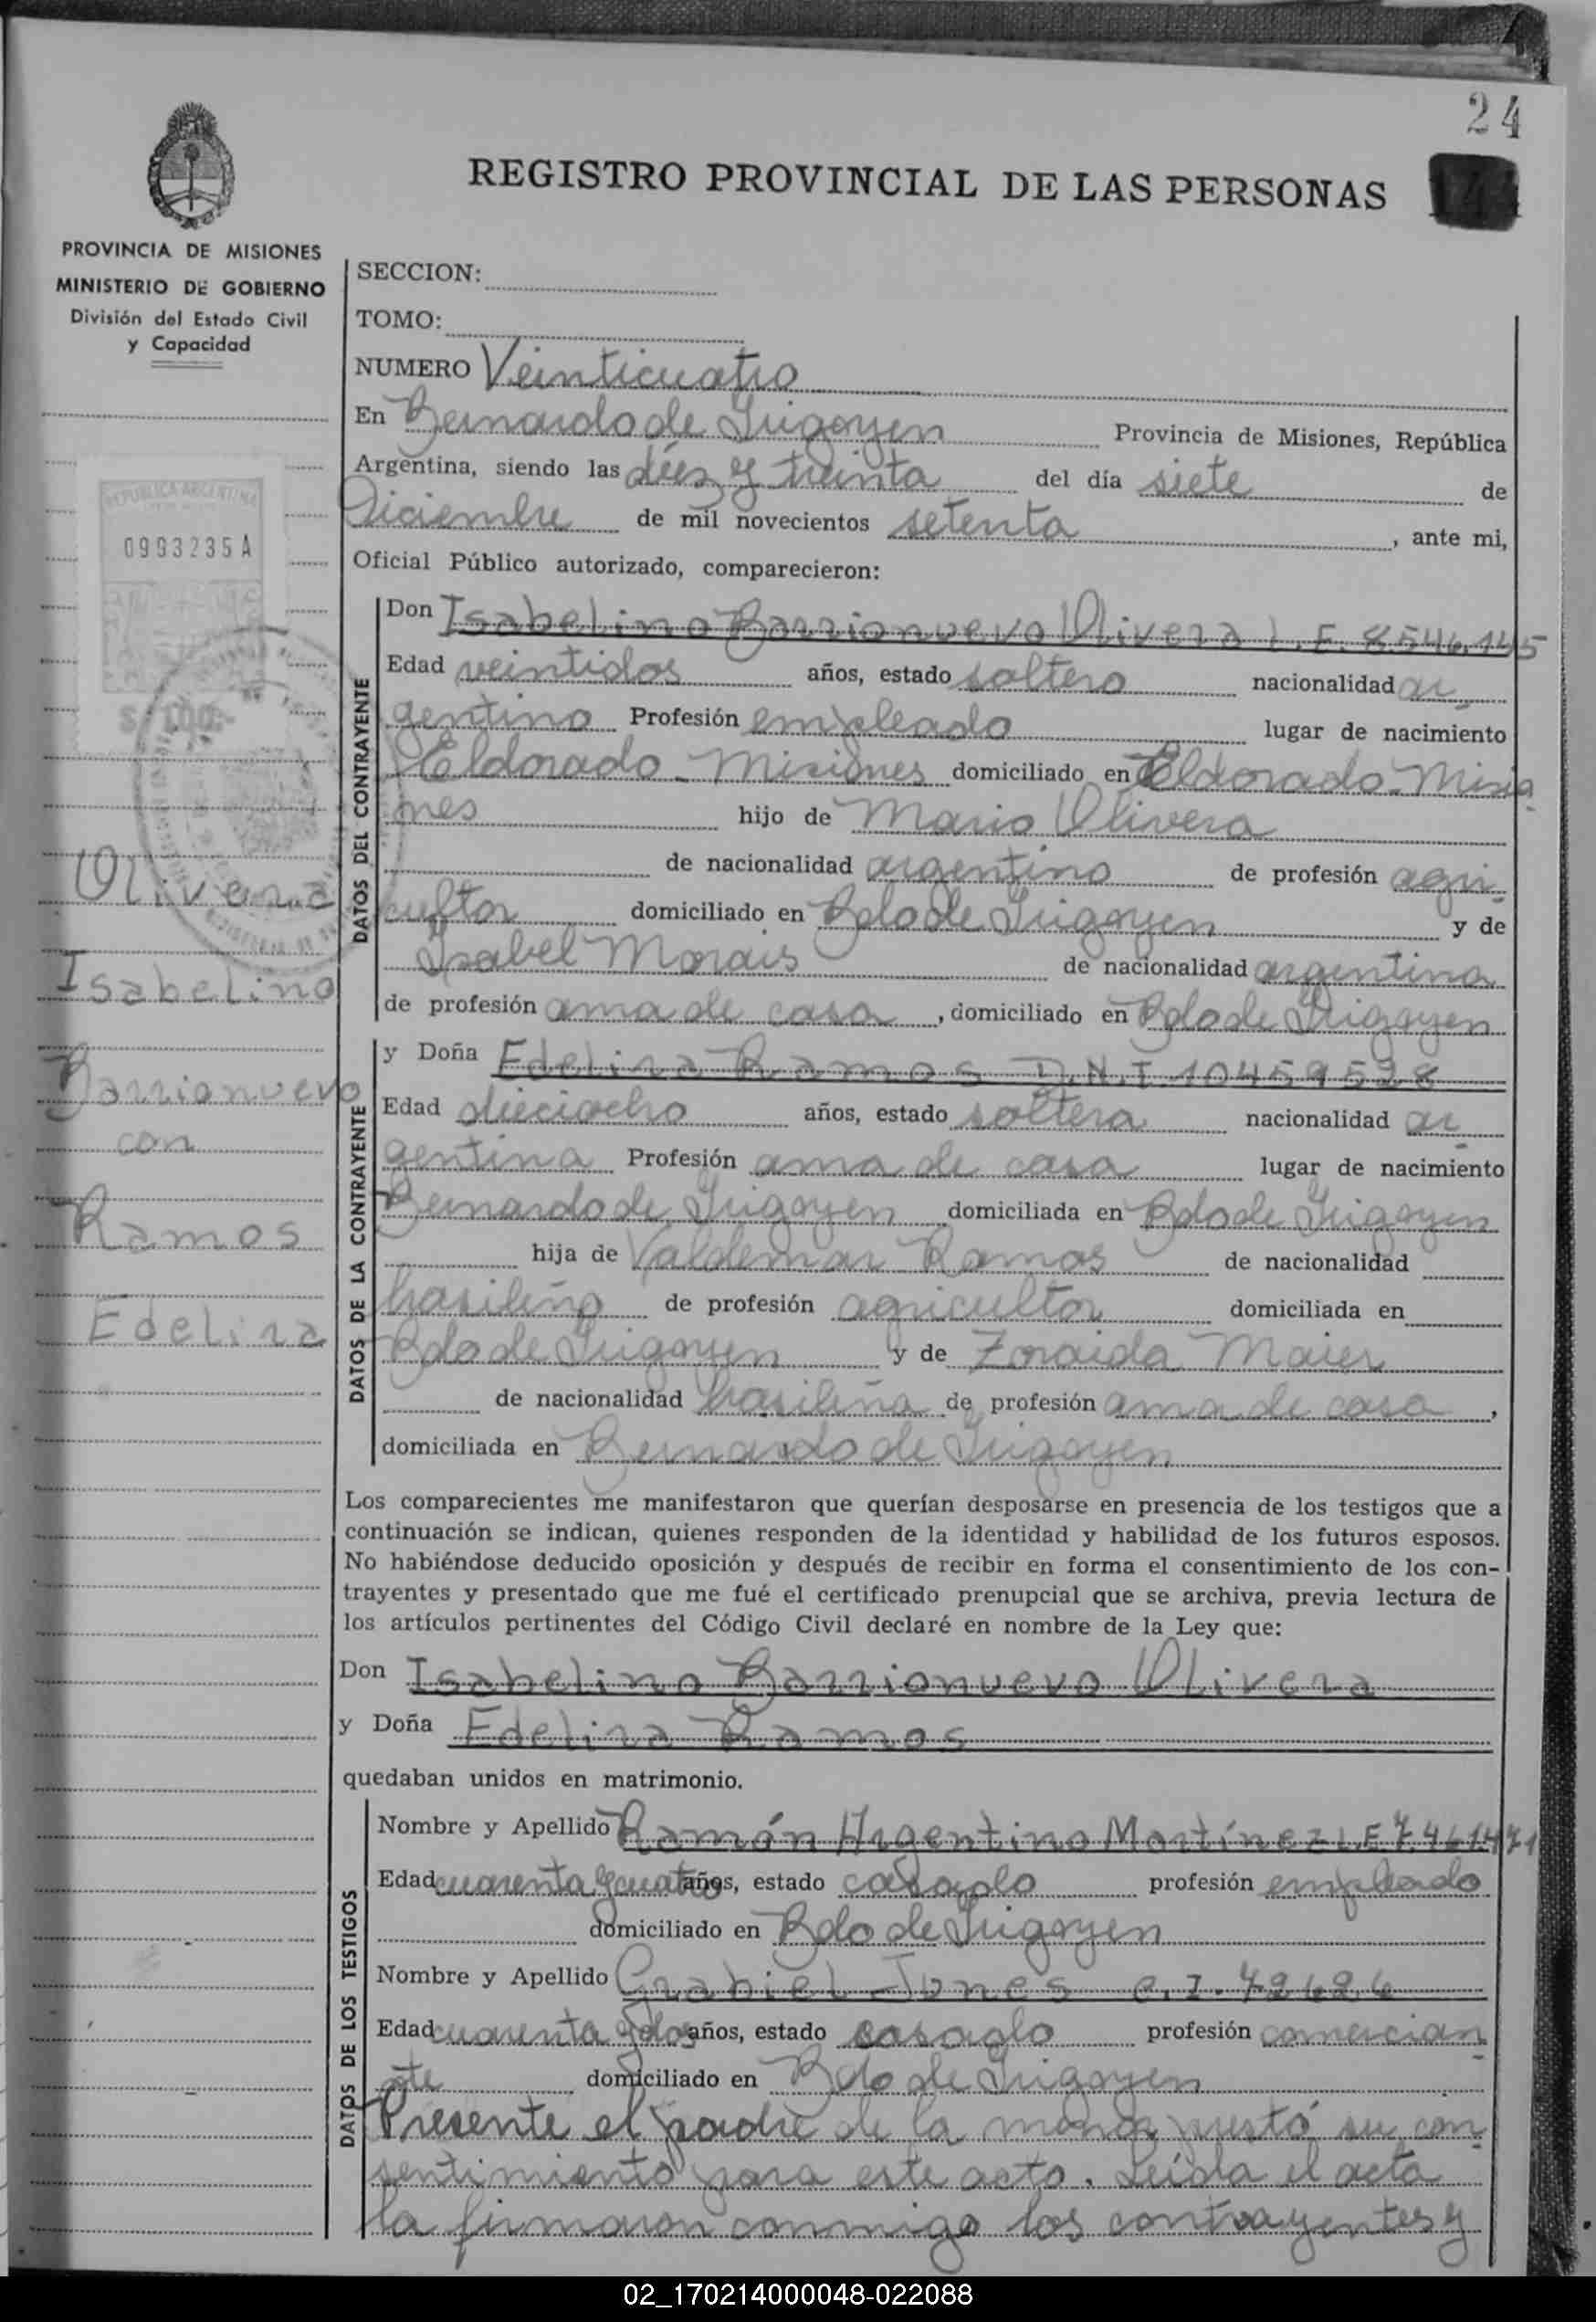 24
REGISTRO PROVINCIAL DE LAS PERSONAS
PROVINCIA DE MISIONES
MINISTERIO DE GOBIERNO
División del Estado Civil
y Capacidad
SECCION:
TOMO:
NUMERO Veinticuatro
En Bernardo de Irigoyen Provincia de Misiones, República
Argentina, siendo las diez y treinta del día siete de
Diciembre de mil novecientos setenta, ante mi,
Oficial Público autorizado, comparecieron:
REPUBLICA ARGENTINA
0993235A
$ 100.-
Olivera
Isabelino
Barrionuevo
con
Ramos
Edelira
DATOS DEL CONTRAYENTE
Don Isabelino Barrionuevo Olivera L.E. 8.546.145
Edad veintidos años, estado soltero nacionalidad ar
gentino Profesión empleado lugar de nacimiento
Eldorado - Misiones domiciliado en Eldorado - Misio
nes hijo de Mario Olivera
de nacionalidad argentino de profesión agri
cultor domiciliado en Bdo de Irigoyen y de
Isabel Morais de nacionalidad argentina
de profesión ama de casa, domiciliado en Bdo de Irigoyen
DATOS DE LA CONTRAYENTE
y Doña Edelira Ramos D.N.I 10459528
Edad dieciocho años, estado soltera nacionalidad ar
gentina Profesión ama de casa lugar de nacimiento
Bernardo de Irigoyen domiciliada en Bdo de Irigoyen
hija de Valdemar Ramos de nacionalidad
brasileño de profesión agricultor domiciliada en
Bdo de Irigoyen y de Zoraida Maier
de nacionalidad brasileña de profesión ama de casa,
domiciliada en Bernardo de Irigoyen
Los comparecientes me manifestaron que querían desposarse en presencia de los testigos que a
continuación se indican, quienes responden de la identidad y habilidad de los futuros esposos.
No habiéndose deducido oposición y después de recibir en forma el consentimiento de los con-
trayentes y presentado que me fué el certificado prenupcial que se archiva, previa lectura de
los artículos pertinentes del Código Civil declaré en nombre de la Ley que:
Don Isabelino Barrionuevo Olivera
y Doña Edelira Ramos
quedaban unidos en matrimonio.
DATOS DE LOS TESTIGOS
Nombre y Apellido Ramón Argentino Martínez L.E. 7.461.471
Edad cuarenta y cuatro años, estado casado profesión empleado
domiciliado en Bdo de Irigoyen
Nombre y Apellido Grabiel Junes C.I. 42626
Edad cuarenta y dos años, estado casado profesión comercian
te domiciliado en Bdo de Irigoyen
Presente el padre de la menor prestó su con
sentimiento para este acto. Leída el acta
la firmaron conmigo los contrayentes y
02_170214000048-022088